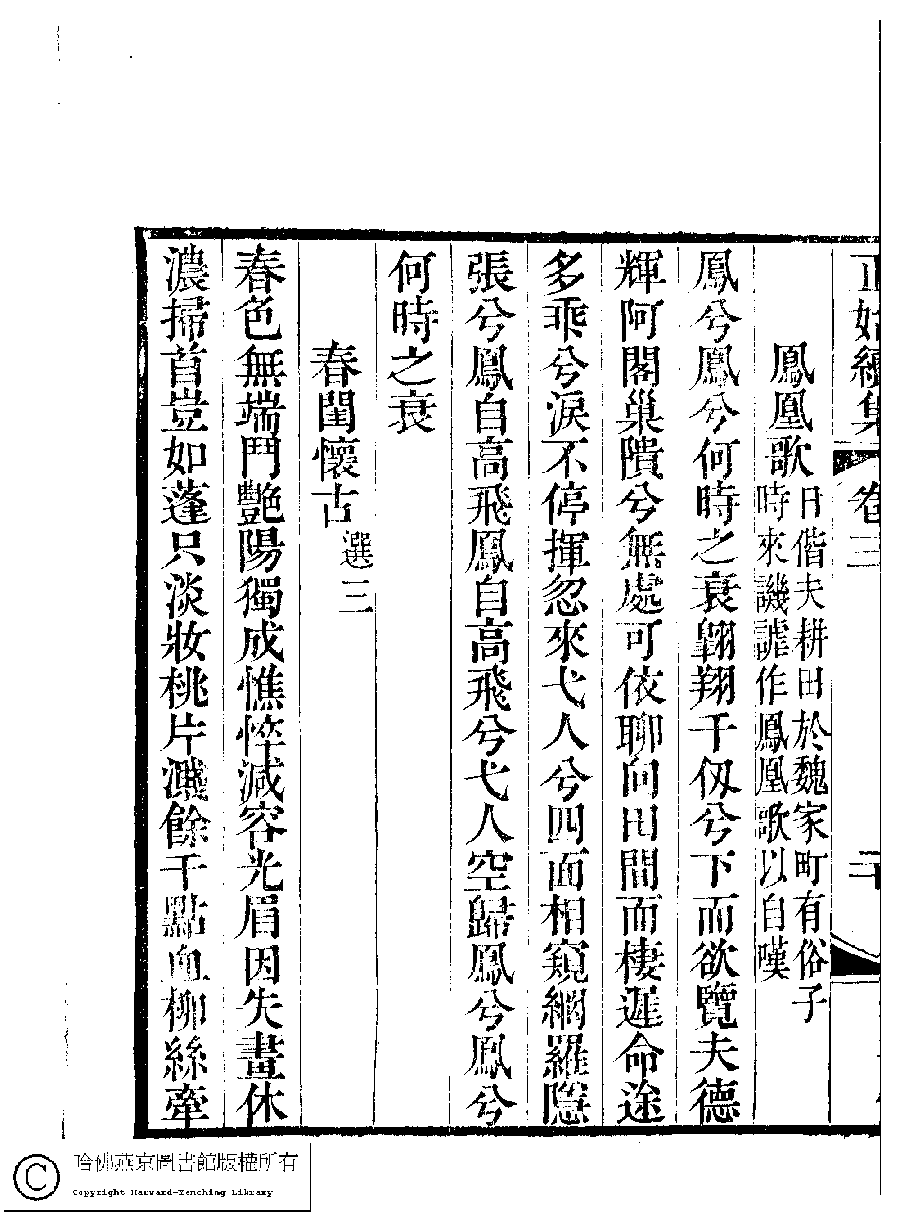 正始續集 卷三 二十
鳳凰歌 日偕夫耕田於魏家町有俗子
時來譏謔作鳳凰歌以自嘆
鳳兮鳳兮何時之衰翺翔千仭兮下而欲覽夫德
輝阿閣巢隤兮無處可依聊向田間而棲遲命途
多乖兮淚不停揮忽來弋人兮四面相窺網羅隱
張兮鳳自高飛鳳自高飛兮弋人空歸鳳兮鳳兮
何時之衰
春閨懷古 選三
春色無端鬥艷陽獨成憔悴減容光眉因失畫休
濃掃首豈如蓬只淡妝桃片濺餘千點血柳絲牽
哈佛燕京圖書館版權所有
Copyright Harvard-Yenching Library